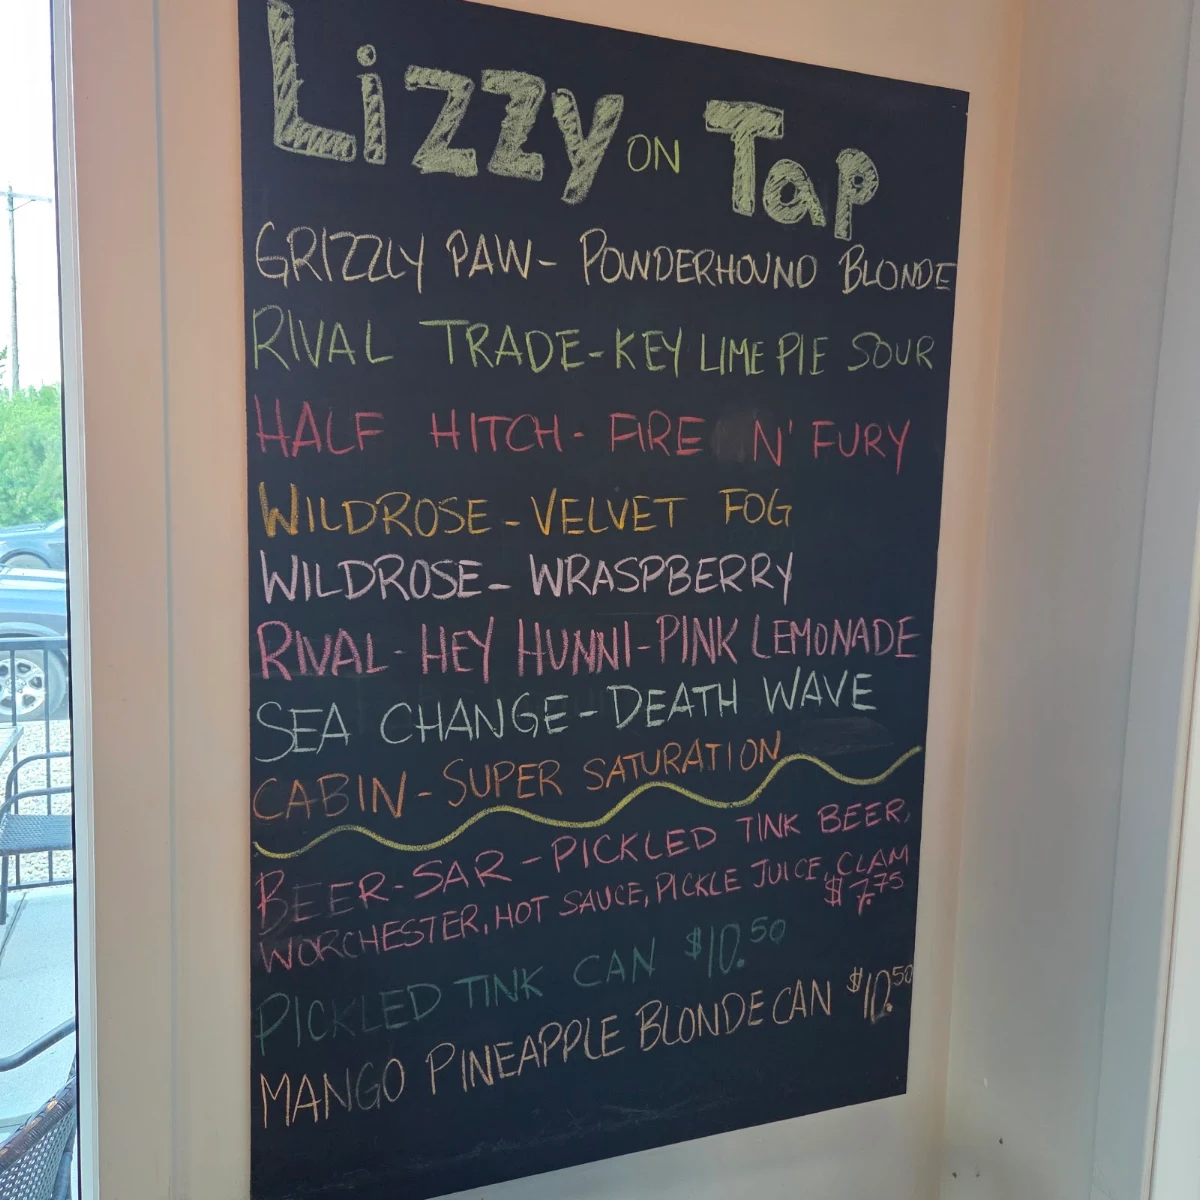 Lizzy ON Tap
GRIZZLY PAW- POWDERHOUND BLONDE
RIVAL TRADE-KEY LIME PIE SOUR
HALF HITCH- FIRE N' FURY
WILDROSE-VELVET FOG
WILDROSE- WRASPBERRY
RIVAL-HEY HUNNI-PINK LEMONADE
SEA CHANGE-DEATH WAVE
CABIN-SUPER SATURATION
BEER-SAR-PICKLED TINK BEER,
WORCHESTER, HOT SAUCE, PICKLE JUICE, CLAM
$7.75
PICKLED TINK CAN $10.50
MANGO PINEAPPLE BLONDE CAN $10.50